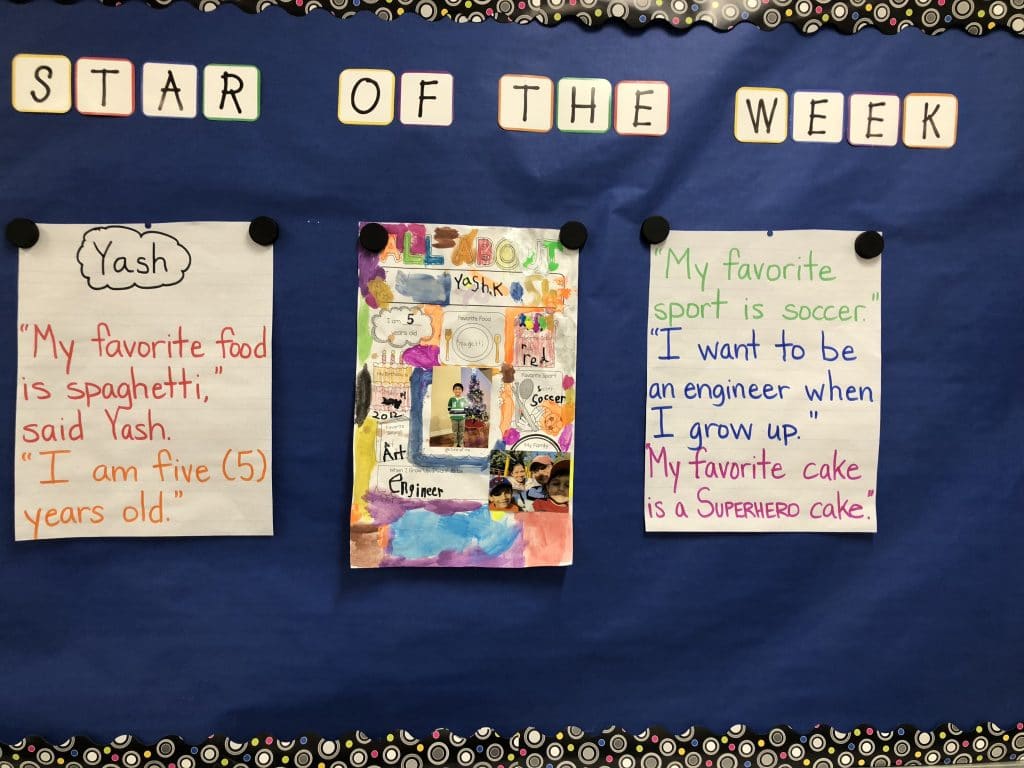 STAR OF THE WEEK
Yash
"My favorite food
is spaghetti,"
said Yash.
"I am five (5)
years old."
ALL ABOUT
Yash.K
I am 5
years old
Favorite Food
red
2012
Favorite Sport
Soccer
Favorite
Art
When I Grow Up
Engineer
My Family
"My favorite
sport is soccer."
"I want to be
an engineer when
I grow up."
My favorite cake
is a SUPERHERO cake."